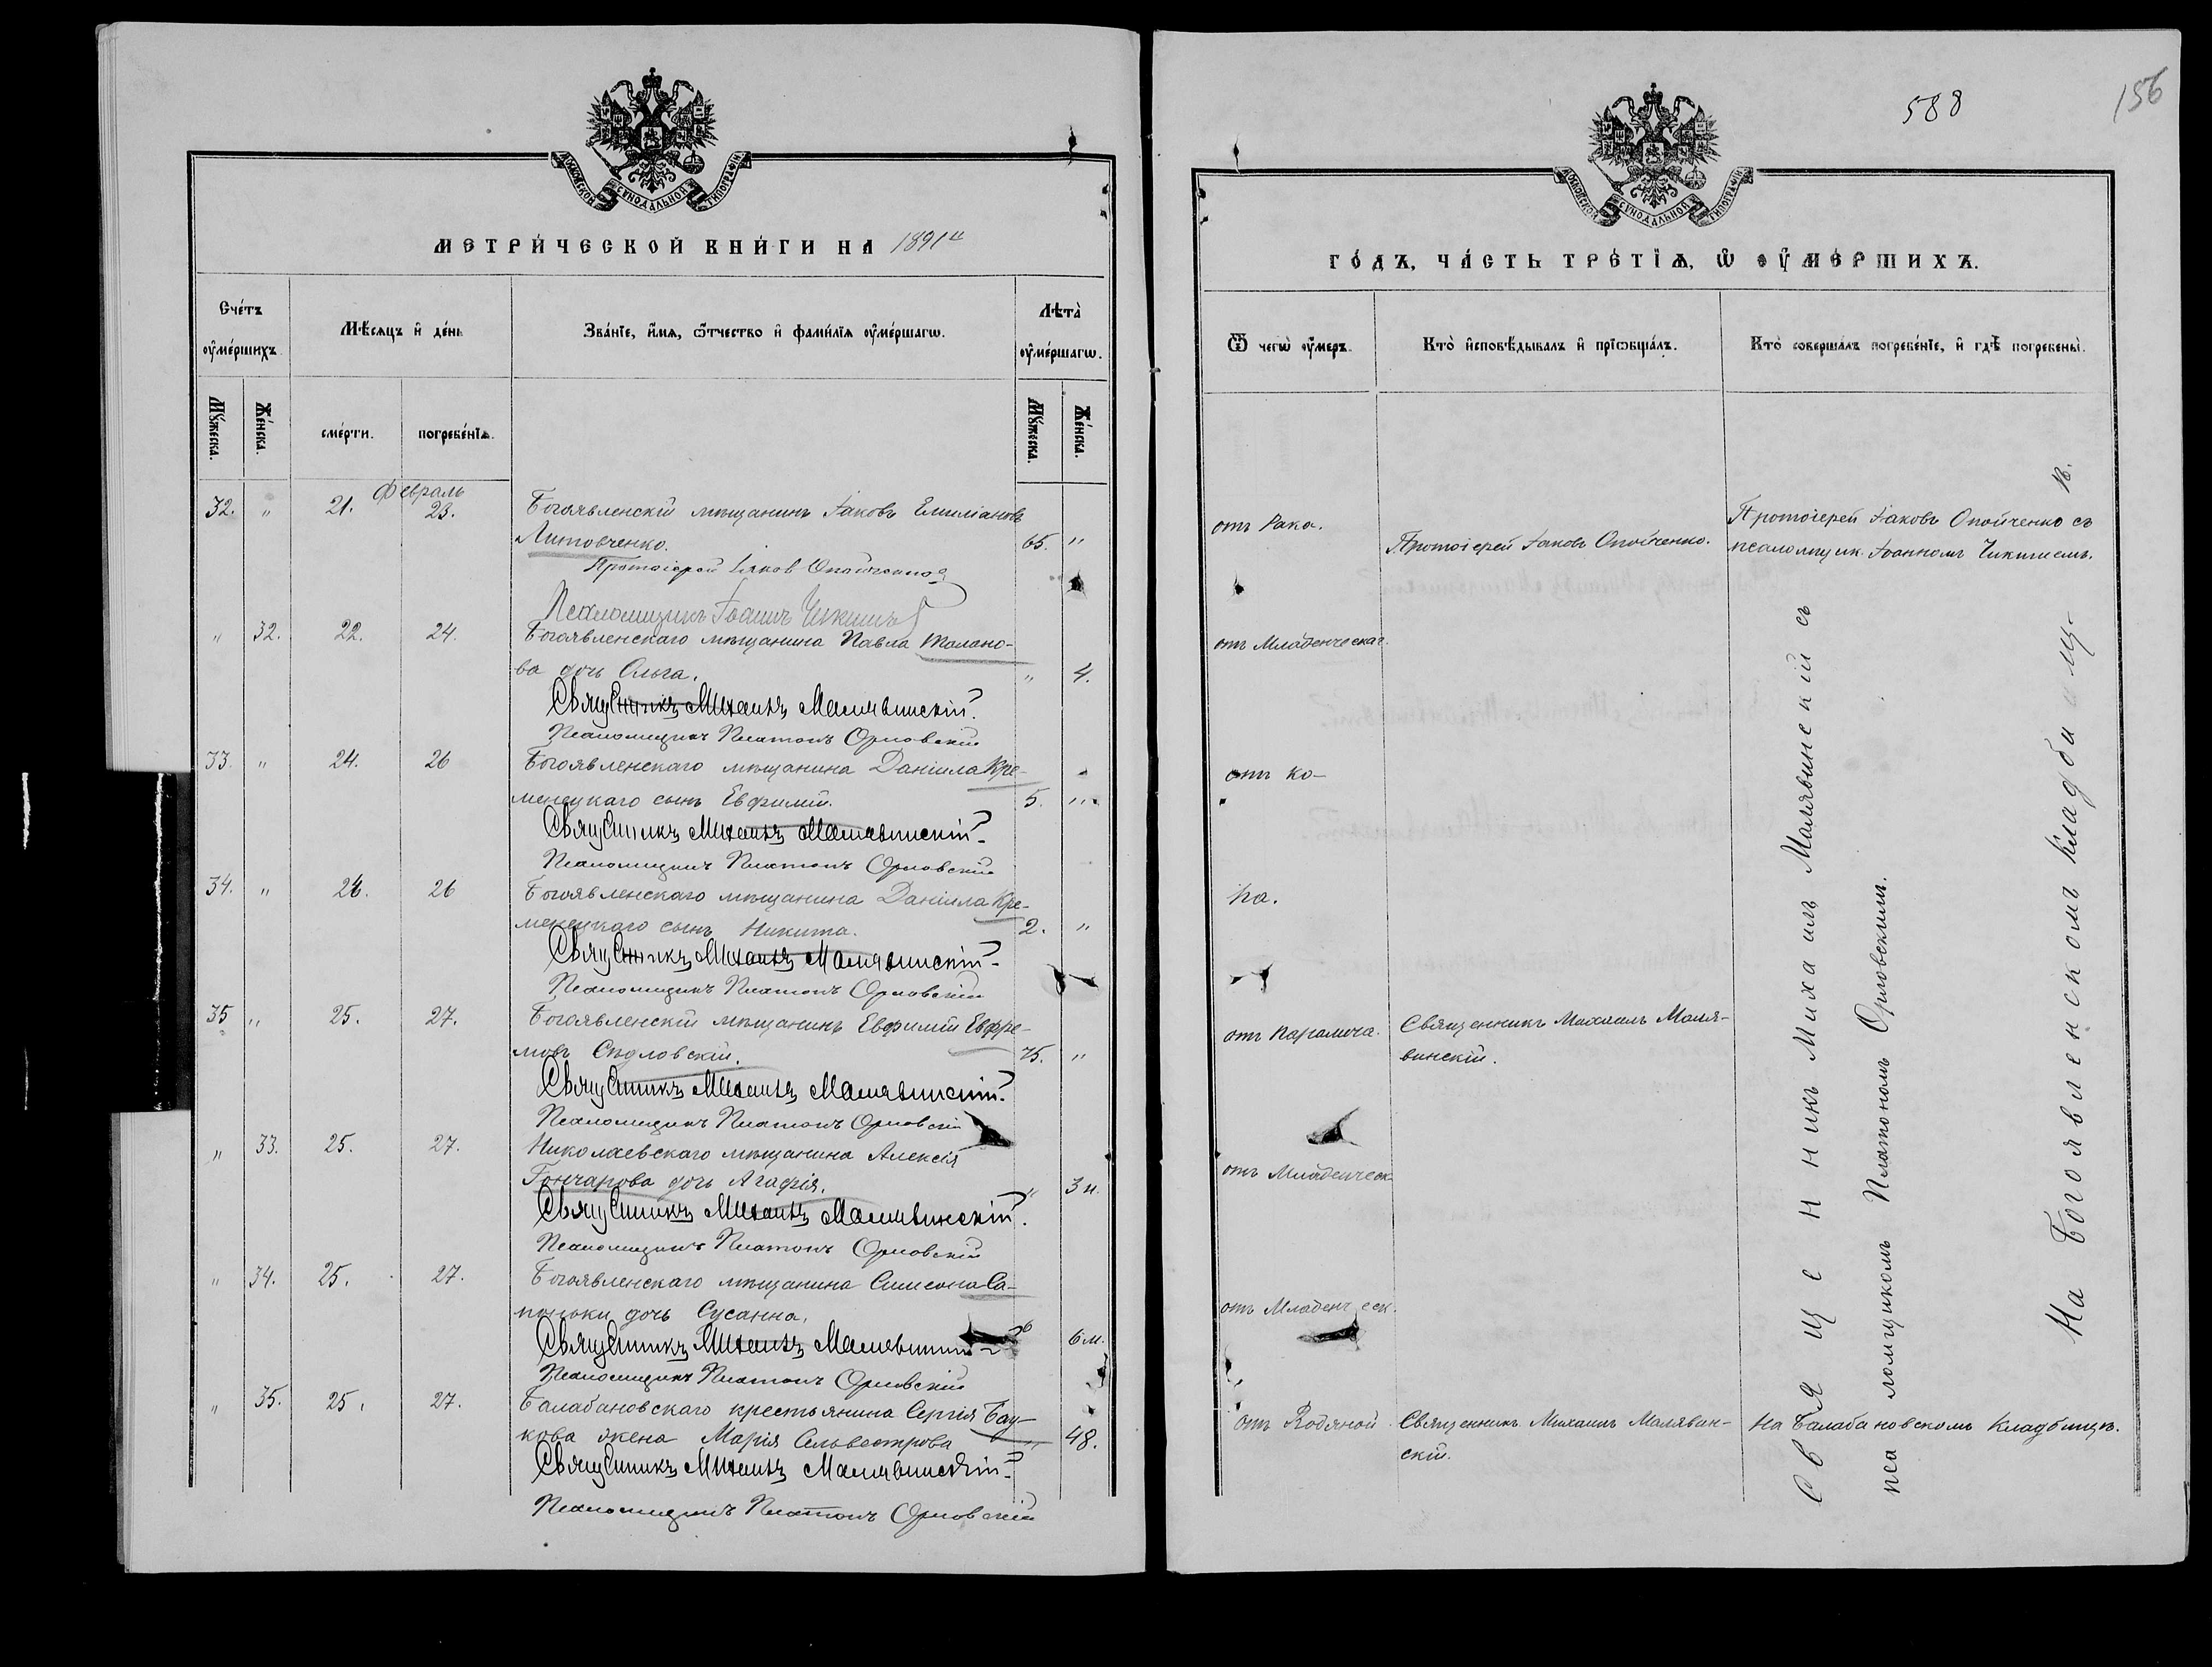 МОСКОВСКОЙ СУНОДАЛЬНОЙ ТИПОГРАФІИ
МЕТРИ́ЧЕСКОЙ КНИ́ГИ НА 1891й
Сче́тъ оу҆ме́ршихъ.
Мѣ́сяцъ и҆ де́нь
Зва́нїе, и҆́мѧ, ѻ҆́тчество и҆ фамѝлїѧ оу҆ме́ршагѡ.
Лѣта̀ оу҆ме́ршагѡ.
Мꙋ́жеска.
Же́нска.
сме́рти.
погребе́нїѧ.
Мꙋ́жеска.
Же́нска.
Февраль
32. " 21. 23. Богоявленскій мѣщанинъ Іаковъ Емиліановъ
Литовченко. 65. "
Протоіерей Іаков Опойченко
Псаломщикъ Іоаннъ Чикишъ
" 32. 22. 24. Богоявленскаго мѣщанина Павла Толано-
ва дочь Ольга. " 4.
Священникъ Михаилъ Малявинскій.
Псаломщикъ Платонъ Орловскій
33. " 24. 26 Богоявленскаго мѣщанина Даніила Кре-
менецкаго сынъ Евфимій. 5. "
Священникъ Михаилъ Малявинскій.
Псаломщикъ Платонъ Орловскій
34. " 24. 26 Богоявленскаго мѣщанина Даніила Кре-
менецкаго сынъ Никита. 2. "
Священникъ Михаилъ Малявинскій.
Псаломщикъ Платонъ Орловскій
35 " 25. 27. Богоявленскій мѣщанинъ Евфимій Евфре-
мовъ Сѣдловскій. 75. "
Священникъ Михаилъ Малявинскій.
Псаломщикъ Платонъ Орловскій
" 33. 25. 27. Николаевскаго мѣщанина Алексія
Гончарова дочь Агафія. " 3 н.
Священникъ Михаилъ Малявинскій.
Псаломщикъ Платонъ Орловскій
" 34. 25. 27. Богоявленскаго мѣщанина Симеона Са-
поноки дочь Сусанна. 6 м.
Священникъ Михаилъ Малявинскій
Псаломщикъ Платонъ Орловскій
" 35. 25. 27. Балабановскаго крестьянина Сергія Бау-
кова жена Марія Сельвестрова " 48.
Священникъ Михаилъ Малявинскій.
Псаломщикъ Платонъ Орловскій
588
156
МОСКОВСКОЙ СУНОДАЛЬНОЙ ТИПОГРАФІИ
ГО́ДЪ, ЧА́СТЬ ТРЕ́ТЇѦ, Ѡ҆ ОУ҆МЕ́РШИХЪ.
Ѿ чегѡ̀ оу҆́меръ.
Кто̀ и҆сповѣ́дывалъ и҆ прїѡбща́лъ.
Кто̀ соверша́лъ погребе́нїе, и҆ гдѣ̀ погребены̀.
отъ Рака.
Протоіерей Іаковъ Опойченко.
Протоіерей Іаковъ Опойченко съ
псаломщик. Іоанномъ Чикишемъ.
отъ Младенческаг.
отъ ко-
ра.
отъ Паралича. Священникъ Михаилъ Маля-
винскій.
отъ Младенческ
отъ Младенческ.
отъ Водяной. Священникъ Михаилъ Малявин-
скій.
На Балабановскомъ Кладбищѣ.
Священникъ Михаилъ Малявинскій съ
псаломщикомъ Платономъ Орловскимъ.
На Богоявленскомъ кладбищ-
ѣ.